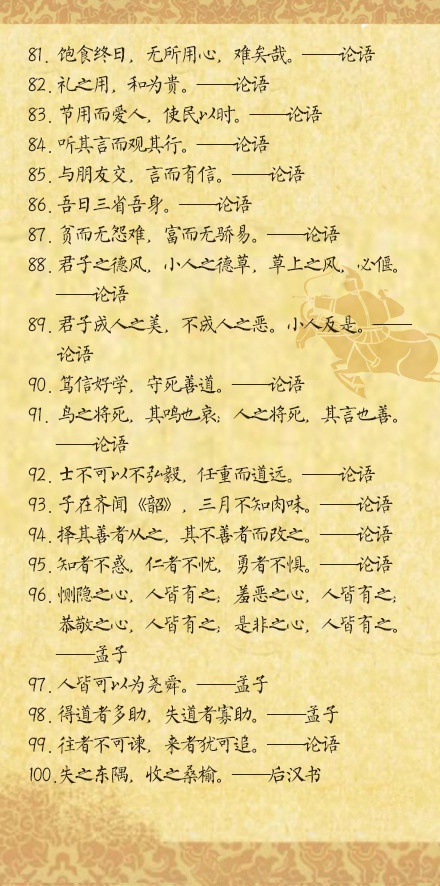 81. 饱食终日，无所用心，难矣哉。——论语
82. 礼之用，和为贵。——论语
83. 节用而爱人，使民以时。——论语
84. 听其言而观其行。——论语
85. 与朋友交，言而有信。——论语
86. 吾日三省吾身。——论语
87. 贫而无怨难，富而无骄易。——论语
88. 君子之德风，小人之德草，草上之风，必偃。
——论语
89. 君子成人之美，不成人之恶。小人反是。——
论语
90. 笃信好学，守死善道。——论语
91. 鸟之将死，其鸣也哀；人之将死，其言也善。
——论语
92. 士不可以不弘毅，任重而道远。——论语
93. 子在齐闻《韶》，三月不知肉味。——论语
94. 择其善者从之，其不善者而改之。——论语
95. 知者不惑，仁者不忧，勇者不惧。——论语
96. 恻隐之心，人皆有之；羞恶之心，人皆有之；
恭敬之心，人皆有之；是非之心，人皆有之。
——孟子
97. 人皆可以为尧舜。——孟子
98. 得道者多助，失道者寡助。——孟子
99. 往者不可谏，来者犹可追。——论语
100.失之东隅，收之桑榆。——后汉书